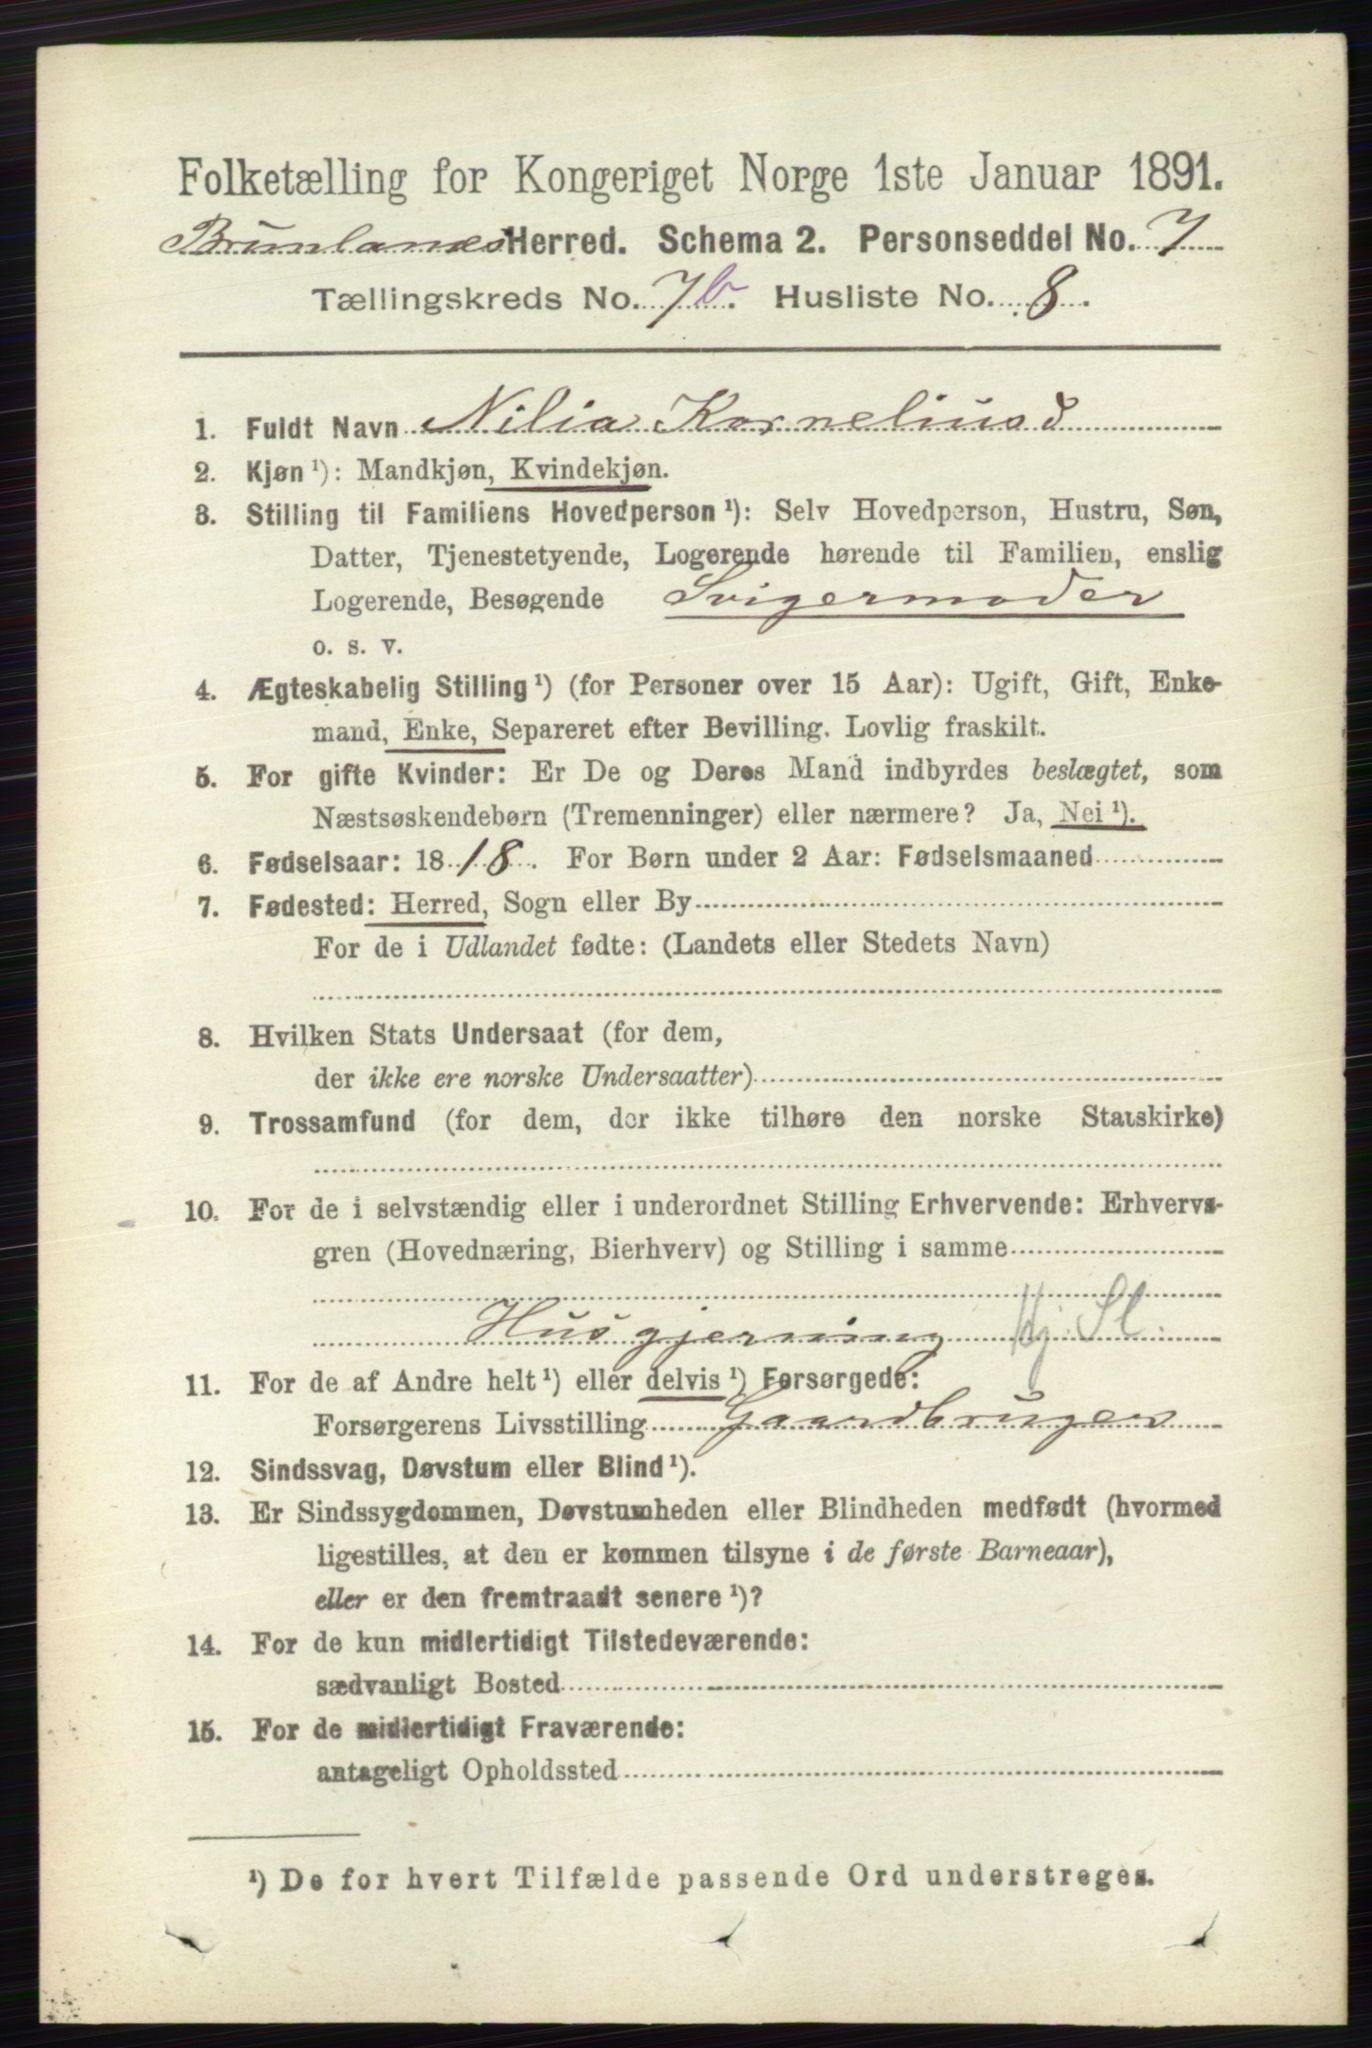 Folketælling for Kongeriget Norge 1ste Januar 1891.
Brunlanes Herred. Schema 2. Personseddel No. 7
Tællingskreds No. 7b. Husliste No. 8.
1. Fuldt Navn Nilia Korneliusd
2. Kjøn ¹): Mandkjøn, Kvindekjøn.
3. Stilling til Familiens Hovedperson ¹): Selv Hovedperson, Hustru, Søn,
Datter, Tjenestetyende, Logerende hørende til Familien, enslig
Logerende, Besøgende Svigermoder
o. s. v.
4. Ægteskabelig Stilling ¹) (for Personer over 15 Aar): Ugift, Gift, Enke-
mand, Enke, Separeret efter Bevilling. Lovlig fraskilt.
5. For gifte Kvinder: Er De og Deres Mand indbyrdes beslægtet, som
Næstsøskendebørn (Tremenninger) eller nærmere? Ja, Nei ¹).
6. Fødselsaar: 1818. For Børn under 2 Aar: Fødselsmaaned
7. Fødested: Herred, Sogn eller By
For de i Udlandet fødte: (Landets eller Stedets Navn)
8. Hvilken Stats Undersaat (for dem,
der ikke ere norske Undersaatter)
9. Trossamfund (for dem, der ikke tilhøre den norske Statskirke)
10. For de i selvstændig eller i underordnet Stilling Erhvervende: Erhvervs-
gren (Hovednæring, Bierhverv) og Stilling i samme
Husgjerning Hj. Sl.
11. For de af Andre helt ¹) eller delvis ¹) Forsørgede:
Forsørgerens Livsstilling Gaardbruger
12. Sindssvag, Døvstum eller Blind ¹).
13. Er Sindssygdommen, Døvstumheden eller Blindheden medfødt (hvormed
ligestilles, at den er kommen tilsyne i de første Barneaar),
eller er den fremtraadt senere ¹)?
14. For de kun midlertidigt Tilstedeværende:
sædvanligt Bosted
15. For de midlertidigt Fraværende:
antageligt Opholdssted
¹) De for hvert Tilfælde passende Ord understreges.